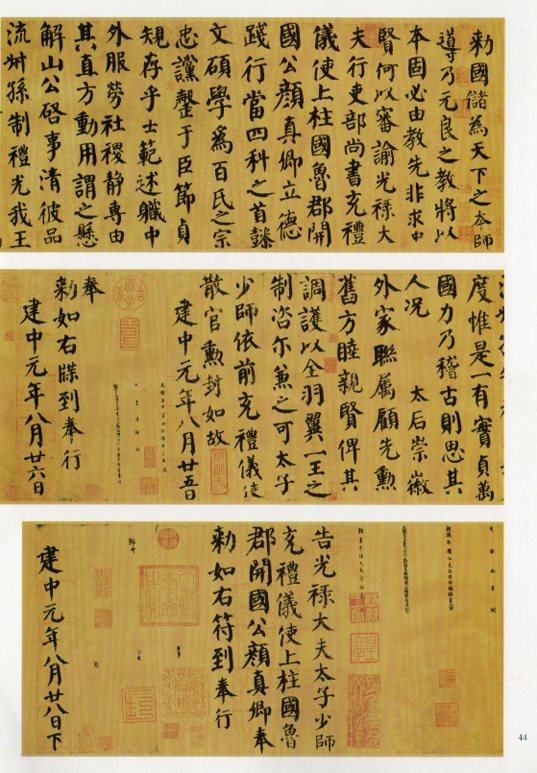 勑國儲為天下之本師
導乃元良之教將以
本固必由教先非求中
賢何以審諭光祿大
夫行吏部尚書充禮
儀使上柱國魯郡開
國公顏真卿立德
踐行當四科之首懿
文碩學為百氏之宗
忠讜罄于臣節貞
規存乎士範述職中
外服勞社稷靜專由
其直方動用謂之懸
解山公啓事清彼品
流叔孫制禮光我王
度惟是一有實貞萬
國力乃稽古則思其
人況 太后崇徽
外家聯屬顧先勳
舊方睦親賢俾其
調護以全羽翼一王之
制咨尔兼之可太子
少師依前充禮儀使
散官勳封如故
建中元年八月廿五日
奉
勑如右牒到奉行
建中元年八月廿六日
告光祿大夫太子少師
充禮儀使上柱國魯
郡開國公顏真卿奉
勑如右符到奉行
建中元年八月廿八日下
44